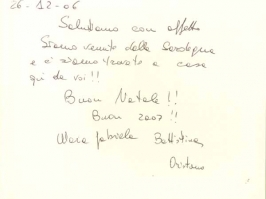 26-12-06
Salutiamo con affetto
Siamo venute dalla Sardegna
e ci siamo trovate a casa
qui da voi!!
Buon Natale!!
Buon 2007!!
Maria Gabriela Battistina
Oristano